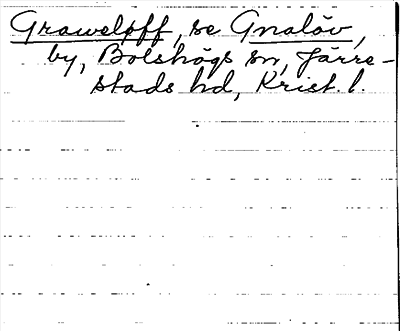 Graweloff, se Gnalöv,
by, Bolshögs sn, Järre-
stads hd, Krist. l.